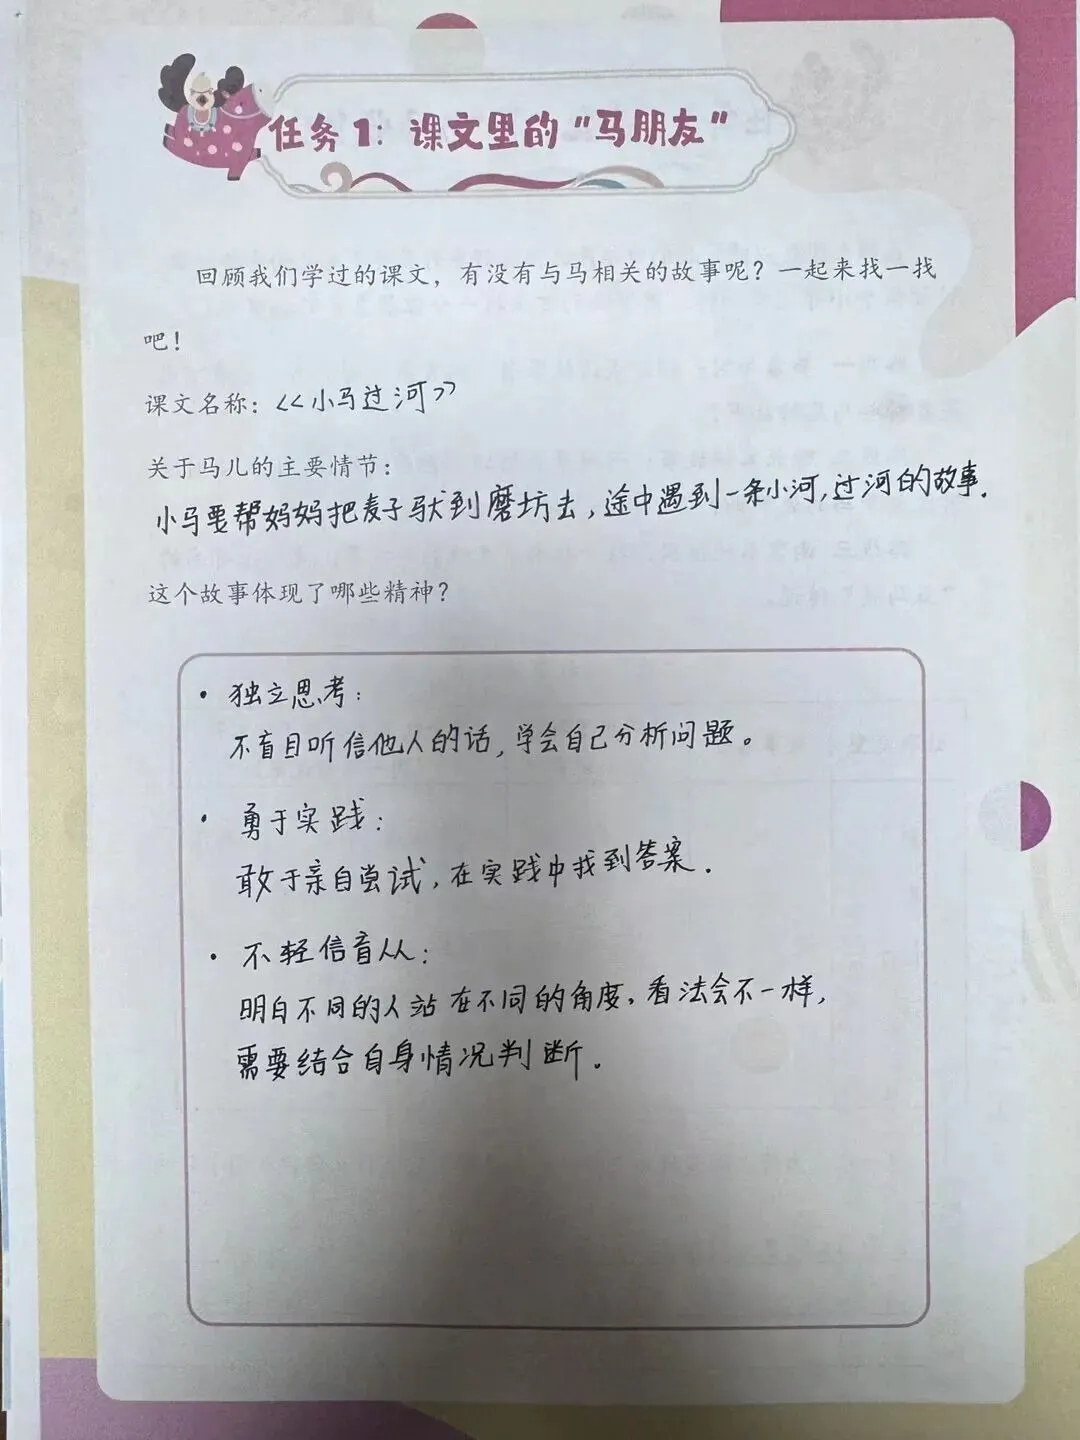 任务1：课文里的“马朋友”
回顾我们学过的课文，有没有与马相关的故事呢？一起来找一找
吧！
课文名称：《小马过河》
关于马儿的主要情节：
小马要帮妈妈把麦子驮到磨坊去，途中遇到一条小河，过河的故事.
这个故事体现了哪些精神？
· 独立思考：
不盲目听信他人的话，学会自己分析问题。
· 勇于实践：
敢于亲自尝试，在实践中找到答案.
· 不轻信盲从：
明白不同的人站在不同的角度，看法会不一样，
需要结合自身情况判断.